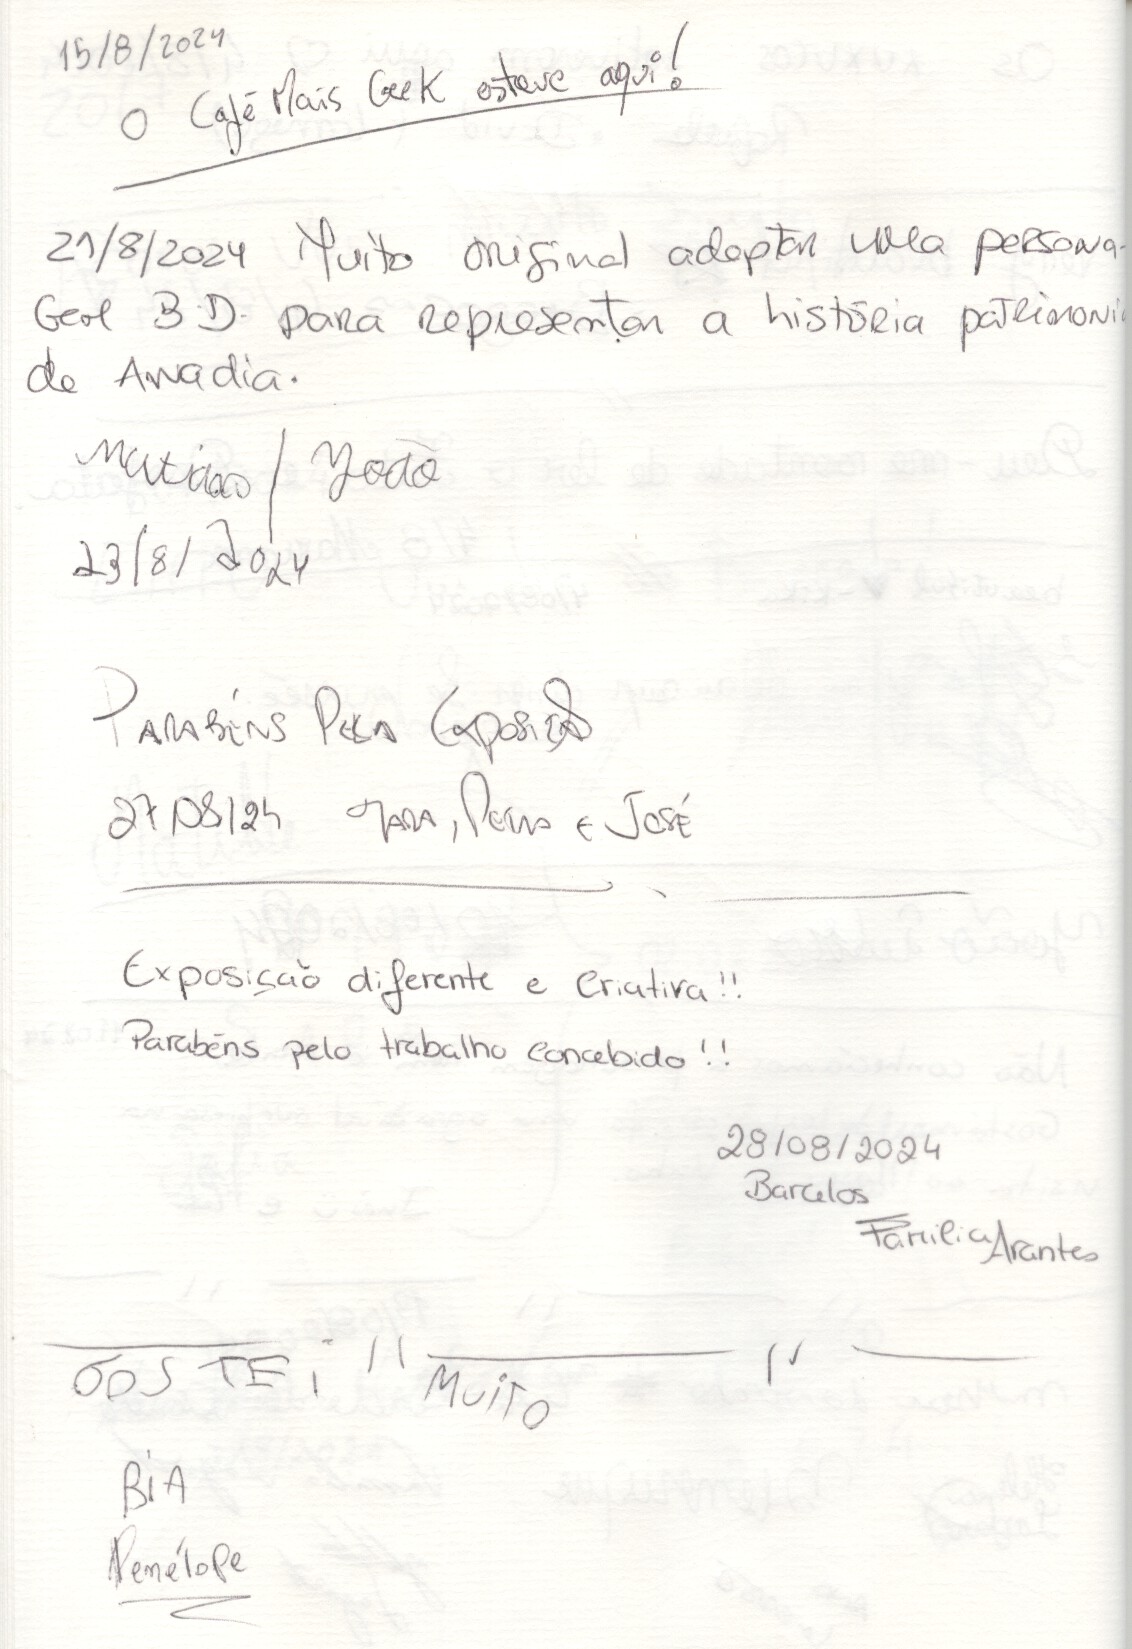 15/8/2024
O Café Mais Geek esteve aqui!
21/8/2024 Muito original adaptar uma persona-
gem B.D. para representar a história patrimoni
de Anadia.
Matias / João
23/8/2024
Parabéns pela Exposição
27/08/24 Mara, Pedro e José
Exposição diferente e criativa!!
Parabéns pelo trabalho concebido!!
28/08/2024
Barcelos
Família Arantes
GOSTEi
MUiTO
BiA
Penélope